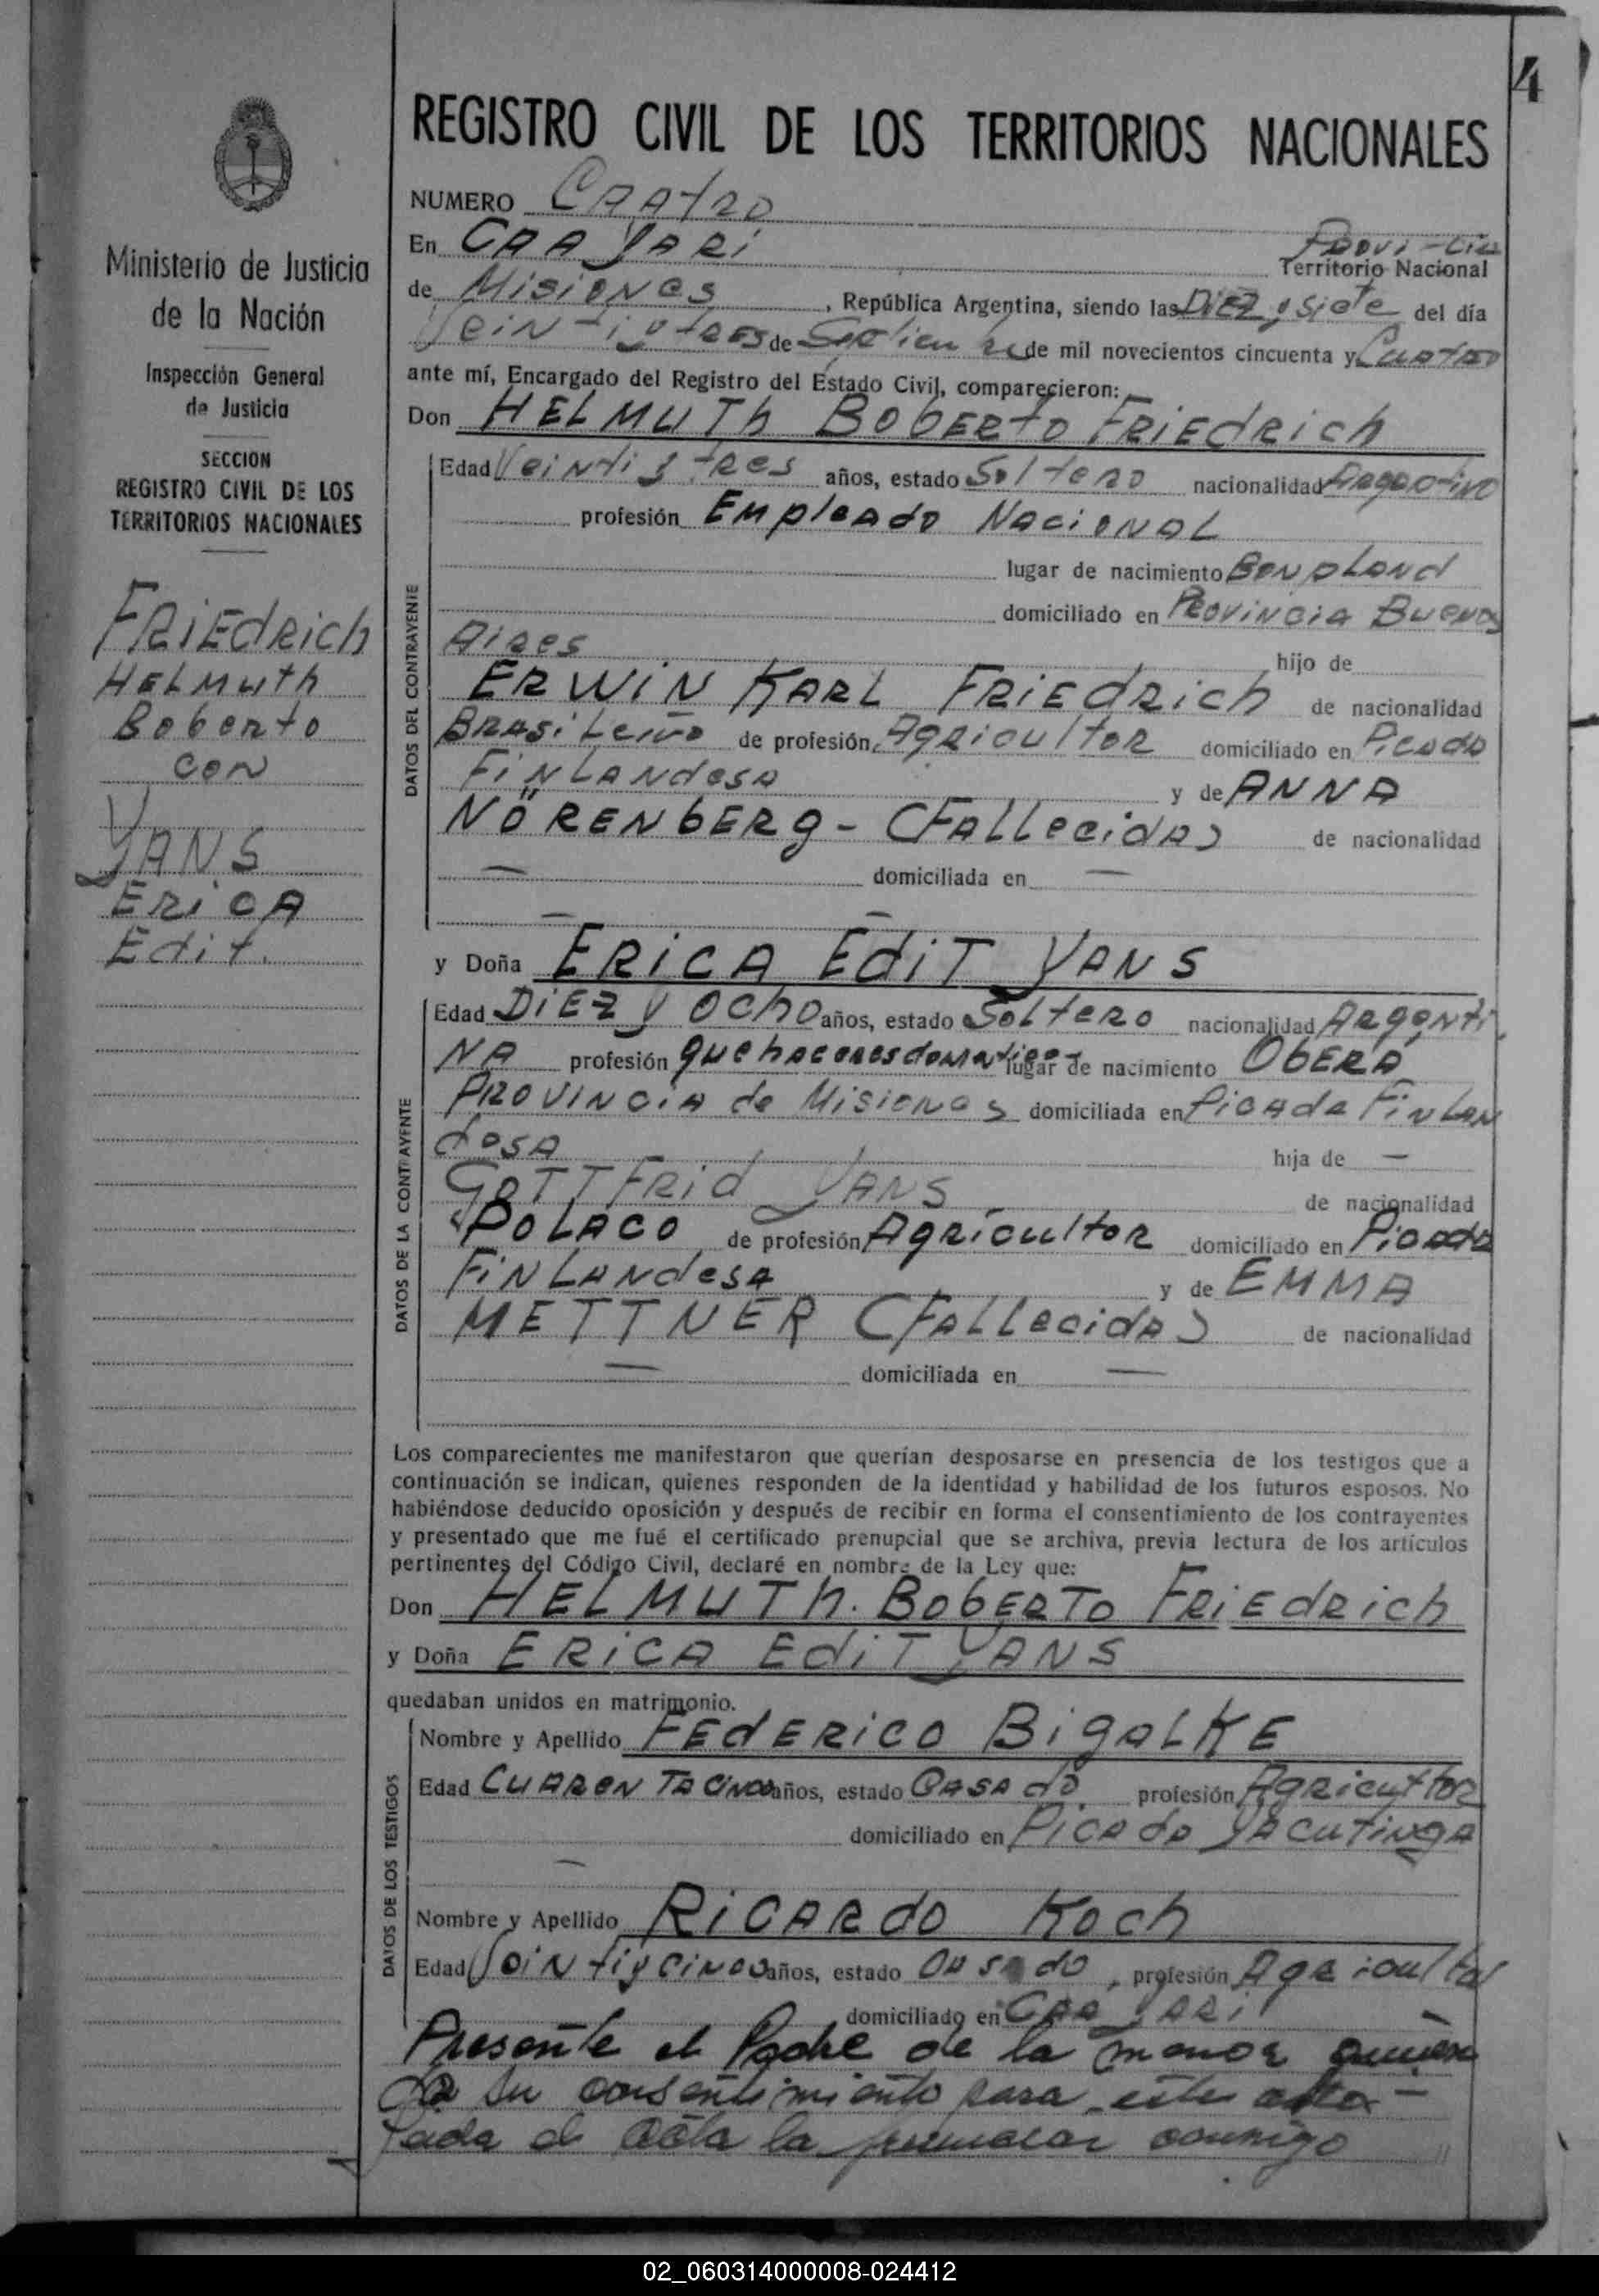 4
REGISTRO CIVIL DE LOS TERRITORIOS NACIONALES
NUMERO CAATRO
En CAA YARI Provincia
Territorio Nacional
de Misiones, República Argentina, siendo las Diez y Siete del día
Veintiytres de Setiembre de mil novecientos cincuenta y Cuatro
ante mí, Encargado del Registro del Estado Civil, comparecieron:
Don HELMUTh BobERTO FRiEdRich
Edad Veintiytres años, estado Soltero nacionalidad Argentino
profesión Empleado Nacional
lugar de nacimiento Bonpland
domiciliado en Provincia Buenos
Aires hijo de
ERWiN KARL FRiEdRich de nacionalidad
Brasileño de profesión Agricultor domiciliado en Picada
Finlandesa y de ANNA
NÖRENbERg - (Fallecida) de nacionalidad
— domiciliada en —
— —
y Doña ERiCA EdiT YANS
Edad Diez y Ocho años, estado Soltero nacionalidad Argenti
NA profesión quehaceres domesticos lugar de nacimiento OBERÁ
Provincia de Misiones domiciliada en Picada Finlan
desa hija de —
GOTTFRid YANS de nacionalidad
Polaco de profesión Agricultor domiciliado en Picada
Finlandesa y de EMMA
METTNER (Fallecida) de nacionalidad
— domiciliada en —
Los comparecientes me manifestaron que querían desposarse en presencia de los testigos que a
continuación se indican, quienes responden de la identidad y habilidad de los futuros esposos. No
habiéndose deducido oposición y después de recibir en forma el consentimiento de los contrayentes
y presentado que me fué el certificado prenupcial que se archiva, previa lectura de los artículos
pertinentes del Código Civil, declaré en nombre de la Ley que:
Don HELMUTh. BobERTO FRiEdRich
y Doña ERiCA EdiT YANS
quedaban unidos en matrimonio.
Nombre y Apellido FEdERico BigaLKE
Edad Cuarenta cinco años, estado Casado profesión Agricultor
domiciliado en Picada Yacutinga
—
Nombre y Apellido RiCARdo Koch
Edad Veintiycinco años, estado Casado, profesión Agricultor
domiciliado en CAA YARI
Presente el Padre de la menor quien
da su consentimiento para este acto -
Leida el Acta la firmaron conmigo
DATOS DEL CONTRAYENTE
DATOS DE LA CONTRAYENTE
DATOS DE LOS TESTIGOS
Ministerio de Justicia
de la Nación
Inspección General
de Justicia
SECCION
REGISTRO CIVIL DE LOS
TERRITORIOS NACIONALES
FRiEdRich
Helmuth
Boberto
con
YANS
ERiCA
Edit.
02_060314000008-024412